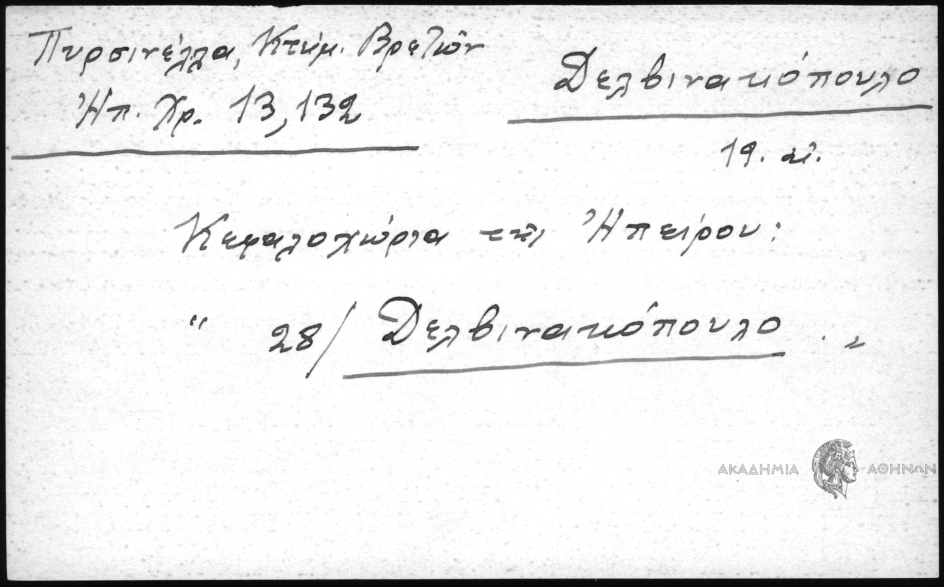 Πυρσινέλλα, Κτημ. Βρετιῶν
Ἠπ. Χρ. 13, 132
Δελβινακόπουλο
19. αἰ.
Κεφαλοχώρια τῆς Ἠπείρου:
“ 28/ Δελβινακόπουλο . „
ΑΚΑΔΗΜΙΑ ΑΘΗΝΩΝ